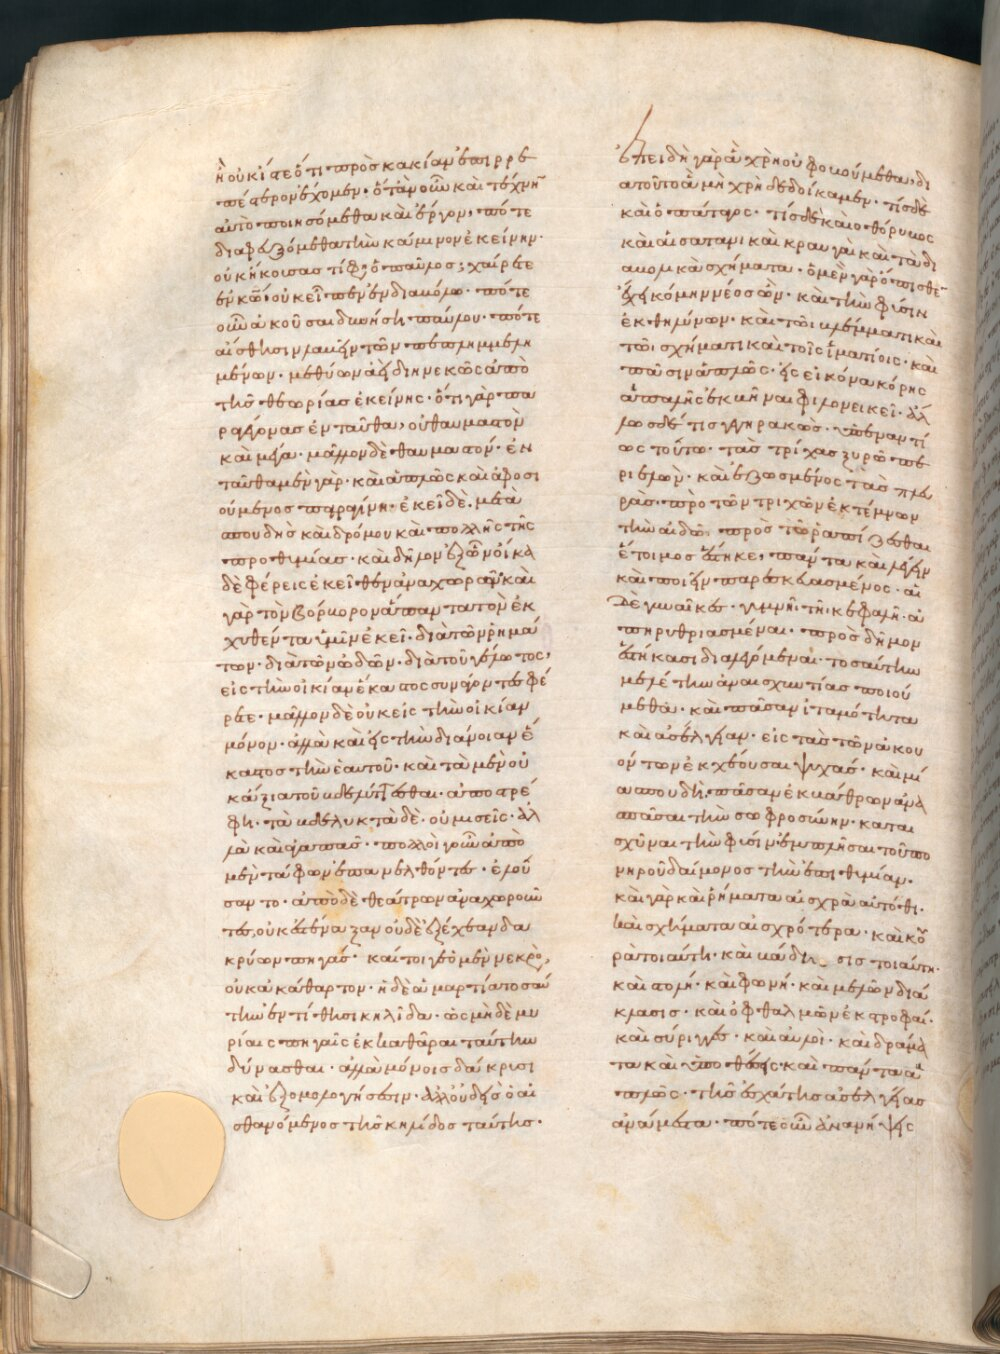 ἢ οὐκ ἴστε ὅτι πρὸς κακίαν ἐπιρρε
πέστερον ἔχομεν· ὅταν οὖν καὶ τέχνην
αὐτὸ ποιησόμεθα καὶ ἔργον, πότε
διαφευξόμεθα τὴν κάμινον ἐκείνην·
οὐκ ἤκουσας τί φησιν ὁ παῦλος; χαίρετε
ἐν κυρίῳ; οὐκ εἶπεν ἐν διαβόλῳ· πότε
οὖν ἀκοῦσαι δυνήσῃ παύλου· πότε
αἴσθησιν λαβεῖν τῶν πεπλημμελη
μένων· μεθύων ἀεὶ διηνεκῶς ἀπὸ
τῆς θεωρίας ἐκείνης· ὅτι γὰρ πα
ραγέγονας ἐνταῦθα, οὐ θαυμαστὸν
καὶ μέγα· μᾶλλον δὲ θαυμαστόν· ἐν
ταῦθα μὲν γὰρ· καὶ ἁπλῶς καὶ ἀφοσι
ούμενος παραγίνῃ· ἐκεῖ δὲ μετὰ
σπουδῆς καὶ δρόμου καὶ πολλῆς τῆς
προθυμίας· καὶ δῆλον ἐξ ὧν οἴκα
δε φέρεις ἐκεῖθεν ἀναχωρῶν· καὶ
γὰρ τὸν βόρβορον ἅπαντα τὸν ἐκ
χυθέντα ὑμῖν ἐκεῖ· διὰ τῶν ῥημά
των· διὰ τῶν ᾠδῶν· διὰ τοῦ γέλωτος,
εἰς τὴν οἰκίαν ἕκαστος συνάγοντες φέ
ρετε· μᾶλλον δὲ οὐκ εἰς τὴν οἰκίαν
μόνον· ἀλλὰ καὶ εἰς τὴν διάνοιαν ἕ
καστος τὴν ἑαυτοῦ· καὶ τὰ μὲν οὐ
κ ἄξια τοῦ βδελύττεσθαι· ἀποστρέ
φῃ· τὰ βδελυκτὰ δὲ· οὐ μισεῖς· ἀλ
λὰ καὶ ἀγαπᾷς· πολλοὶ γοῦν ἀπὸ
μὲν τάφων ἐπανελθόντες· ἐλού
σαντο· ἀπὸ δὲ θεάτρων ἀναχωροῦν
τες, οὐκ ἐστέναξαν οὐδὲ ἐξέχεαν δα
κρύων πηγάς· καίτοι γε ὁ μὲν νεκρὸς,
οὐκ ἀκάθαρτον· ἡ δὲ ἁμαρτία τοσαύ
την ἐντίθησι κηλίδα· ὡς μηδὲ μυ
ρίαις πηγαῖς ἐκκαθᾶραι ταύτην
δύνασθαι· ἀλλὰ μόνοις δάκρυσι
καὶ ἐξομολογήσεσιν· ἀλλ' οὐδεὶς ὁ αἰ
σθανόμενος τῆς κηλίδος ταύτης·
ἐπειδὴ γὰρ ἃ χρὴ οὐ φοβούμεθα, δι
α τοῦτο ἃ μὴ χρὴ δεδοίκαμεν· τίς δὲ
καὶ ὁ πάταγος· τίς δὲ καὶ ὁ θόρυβος
καὶ αἱ σατανικαὶ κραυγαὶ καὶ τὰ δι
αβολικὰ σχήματα· ὁ μὲν γὰρ ὄπισθεν
ἔχει κόμην νέος ὤν· καὶ τὴν φύσιν
ἐκθηλύνων· καὶ τῶι βλέμματι καὶ
τῶι σχήματι καὶ τοῖς ἱματίοις· καὶ
πᾶσιν ἁπλῶς· εἰς εἰκόνα κόρης
ἁπαλῆς ἐκβῆναι φιλονεικεῖ· ἄλ
λος δέ τις γεγηρακὼς· ὑπεναντί
ως τούτῳ· τὰς τρίχας ξυρῷ πε
ριελὼν· καὶ ἐζωσμένος τὰς πλευ
ρὰς· πρὸ τῶν τριχῶν ἐκτεμὼν
τὴν αἰδῶ, πρὸς τὸ ῥαπίζεσθαι
ἕτοιμος ἕστηκε, πάντα καὶ λέγειν
καὶ ποιεῖν παρεσκευασμένος· αἱ
δὲ γυναῖκες· γυμνῆι τῆι κεφαλῆι· ἀ
πηρυθριασμέναι· πρὸς δῆμον
ἑστήκασι διαλεγόμεναι· τοσαύτην
μελέτην ἀναισχυντίας ποιού
μεναι· καὶ πᾶσαν ἰταμότητα
καὶ ἀσέλγειαν· εἰς τὰς τῶν ἀκου
όντων ἐκχέουσαι ψυχάς· καὶ μί
α σπουδὴ, πᾶσαν ἐκ βάθρων ἀνα
σπᾶσαι τὴν σωφροσύνην· καται
σχῦναι τὴν φύσιν· ἐμπλῆσαι τοῦ πο
νηροῦ δαίμονος τὴν ἐπιθυμίαν·
καὶ γὰρ καὶ ῥήματα αἰσχρὰ αὐτόθι·
καὶ σχήματα αἰσχρότερα· καὶ κου
ρὰ τοιαύτη· καὶ βάδισις τοιαύτη·
καὶ στολὴ· καὶ φωνὴ· καὶ μελῶν διά
κλασις· καὶ ὀφθαλμῶν ἐκστροφαί·
καὶ σύριγγες· καὶ αὐλοὶ· καὶ δράμα
τα καὶ ὑποθέσεις· καὶ πάντα ἁ
πλῶς· τῆς ἐσχάτης ἀσελγείας
ἀνάμεστα· πότε οὖν ἀνανήψεις